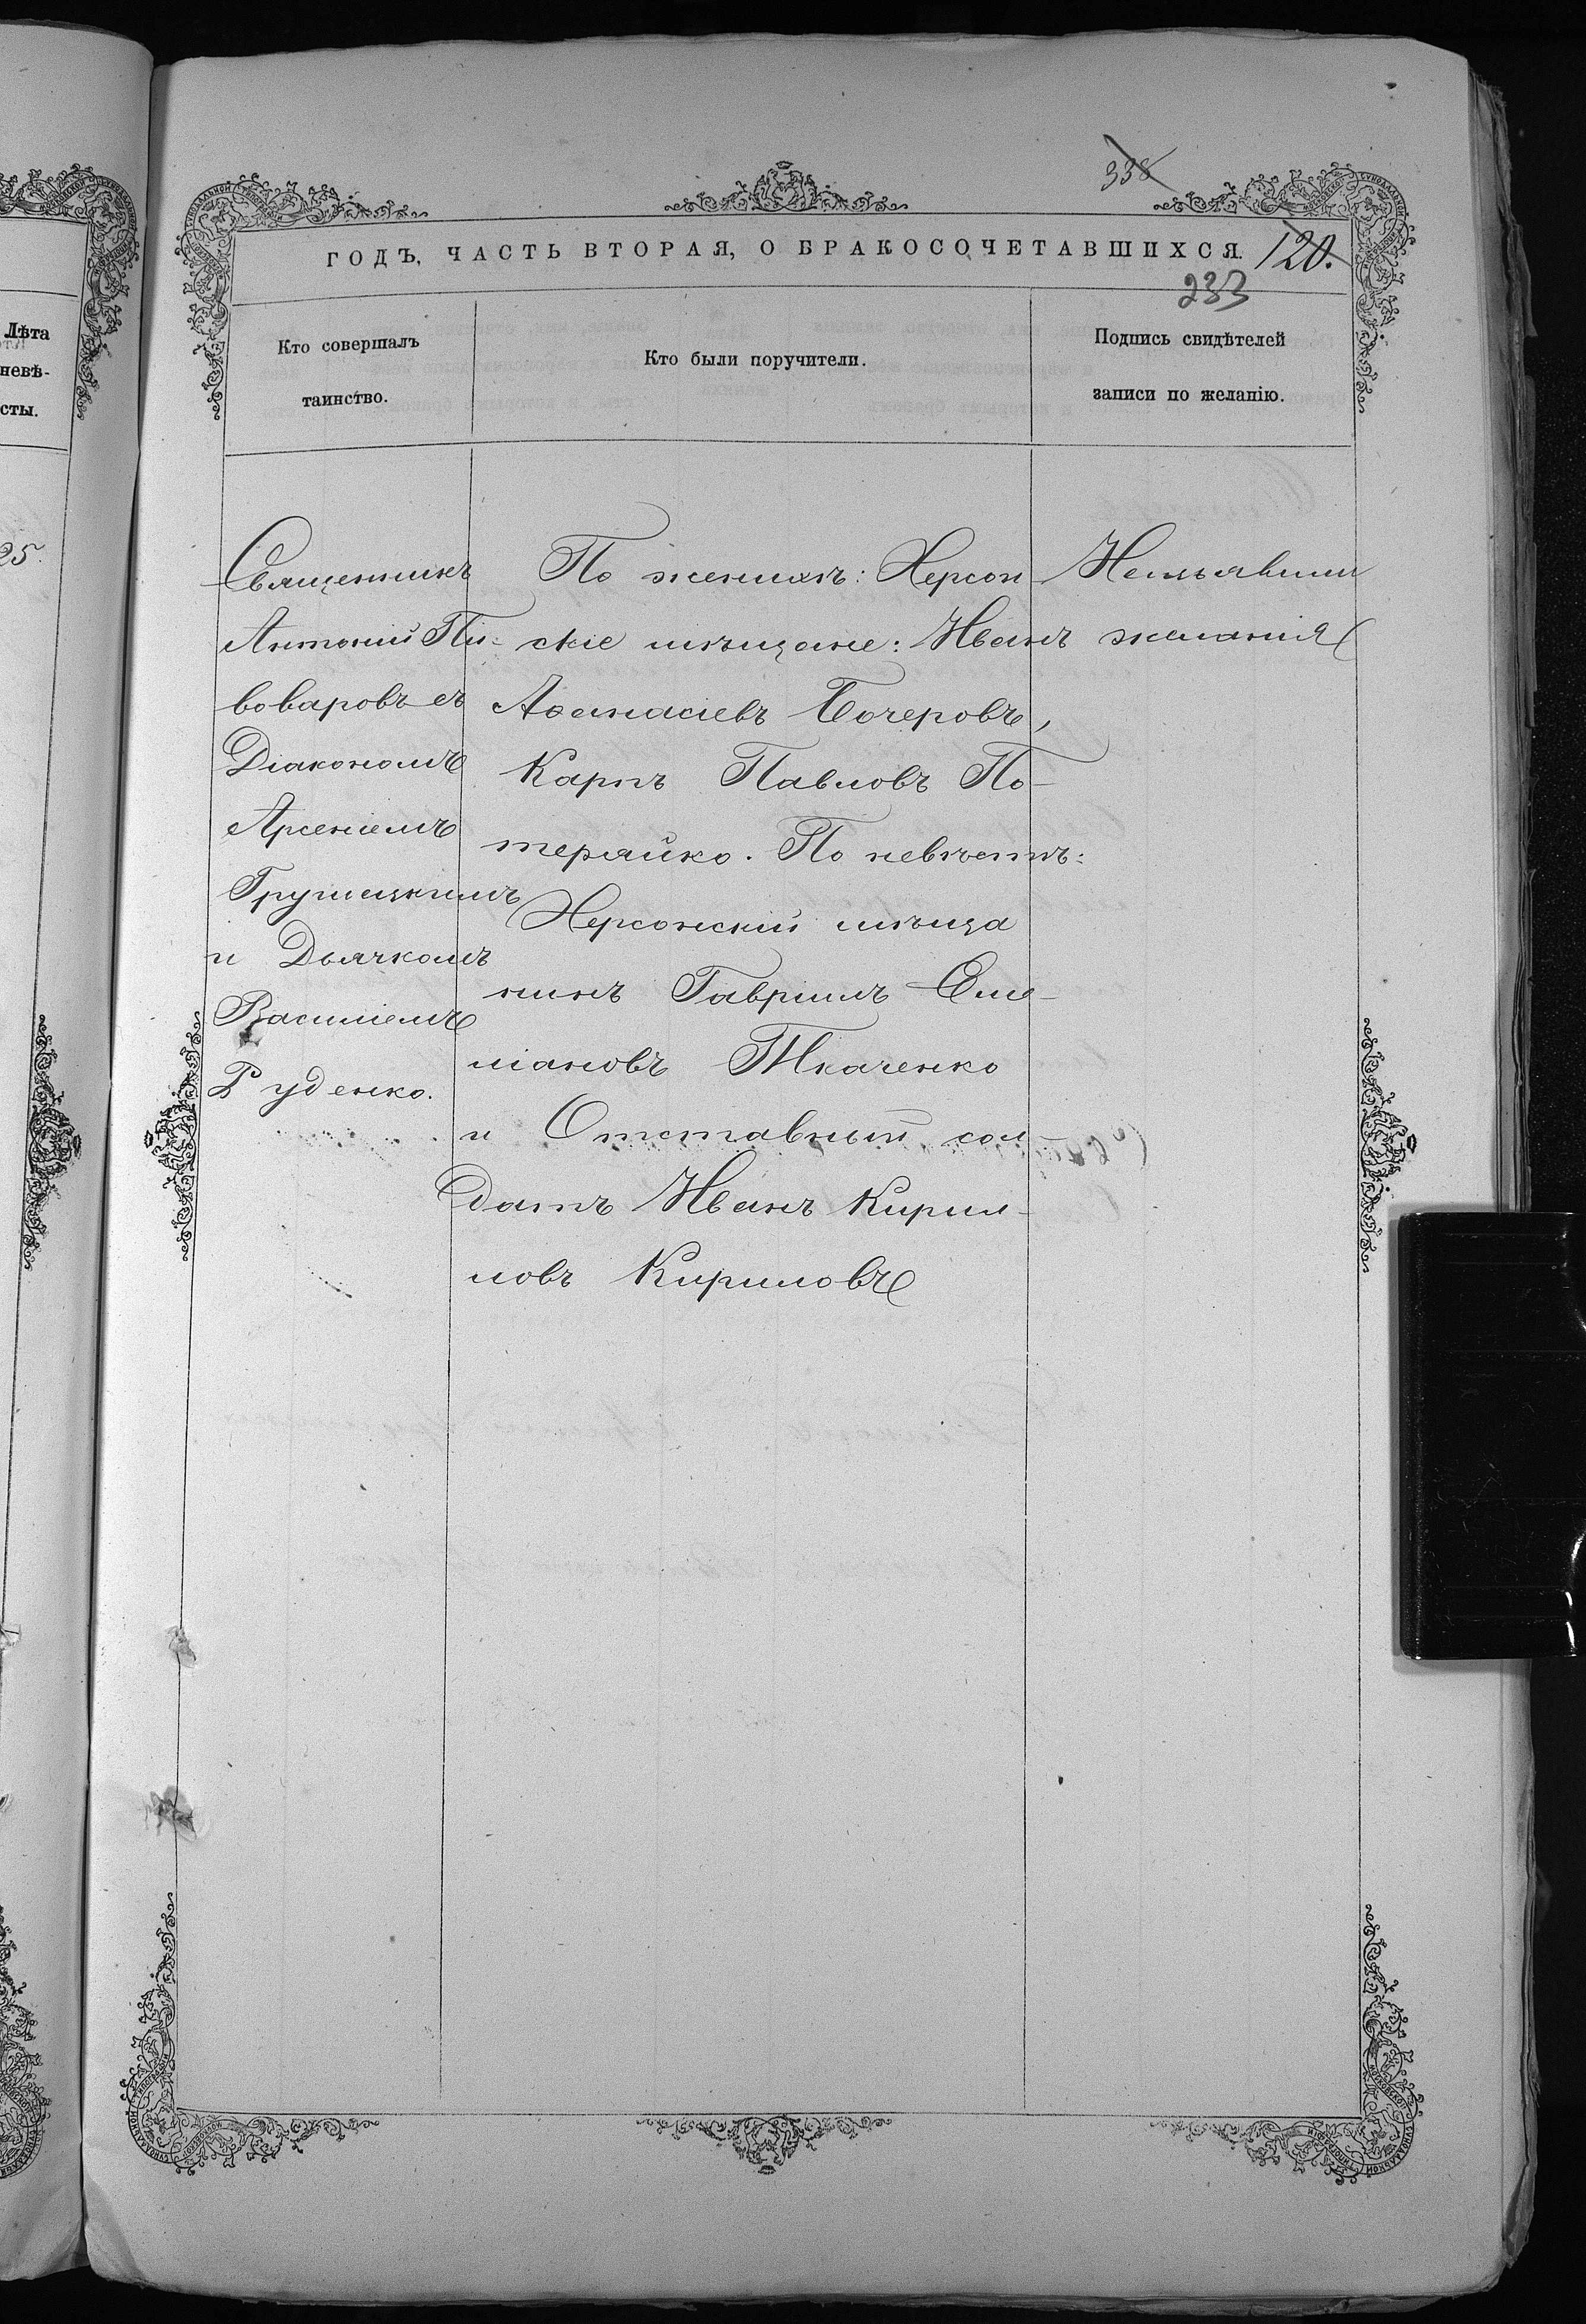 338
ГОДЪ, ЧАСТЬ ВТОРАЯ, О БРАКОСОЧЕТАВШИХСЯ. 120.
233
Лѣта
невѣ-
сты.
25.
Кто совершалъ
таинство.
Кто были поручители.
Подпись свидѣтелей
записи по желанію.
Священникъ
Антоній Пи-
воваровъ съ
Діакономъ
Арсеніемъ
Грушецкимъ
и Дьячкомъ
Василіемъ
Руденко.
По женихѣ: Херсон-
скіе мѣщане: Иванъ
Аѳанасіевъ Бочеровъ,
Карпъ Павловъ По-
терайко. По невѣстѣ:
Херсонскій мѣща
нинъ Гавріилъ Еме-
ліановъ Ткаченко
и Отставный сол-
датъ Иванъ Кирил-
ловъ Кириловъ
Неизъявили
желанія